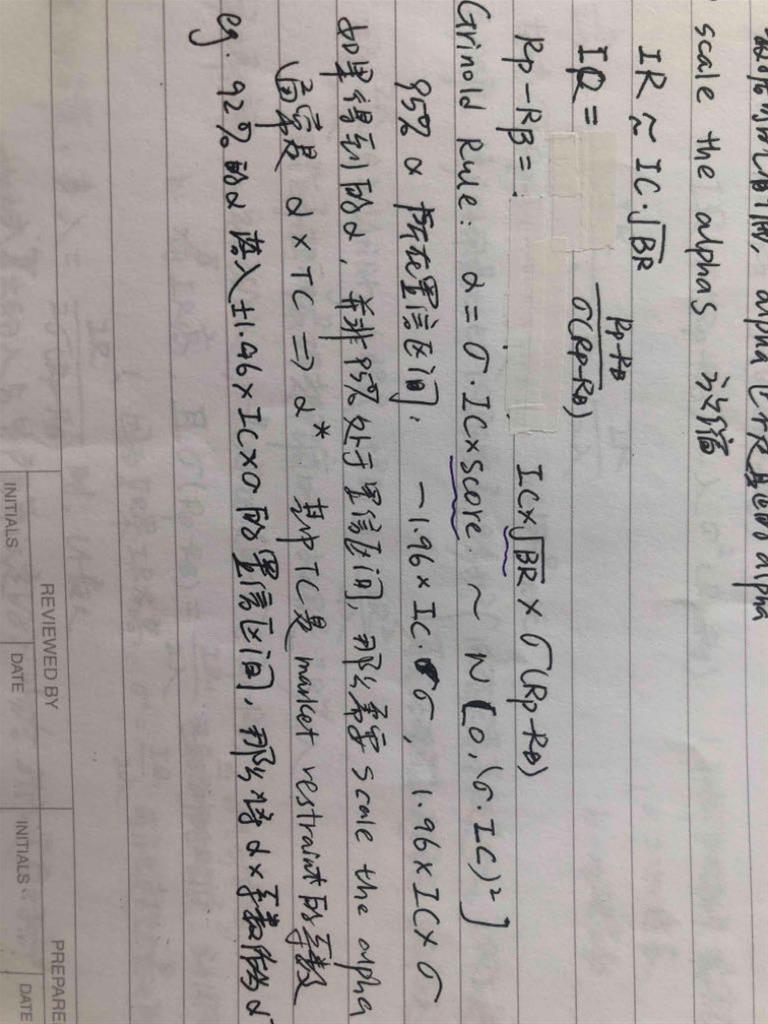 alpha 已不是真的 alpha
scale the alphas 方缩
IR ~ IC·√BR
IR = Rp-RB / σ(Rp-RB)
Rp-RB = IC×√BR × σ(Rp-RB)
Grinold Rule: α = σ·IC×score. ~ N[0,(σ·IC)²]
95% α 所在置信区间. -1.96×IC·σ, 1.96×IC×σ
如果得到的α, 并非95%处于置信区间, 那么需要 scale the alpha
通常是 α×TC ⇒ α* 其中TC是 market restraint的系数
eg. 92%的α 落入±1.96×IC×σ的置信区间, 那么将α×系数作为α
REVIEWED BY
PREPARE
INITIALS DATE INITIALS DATE